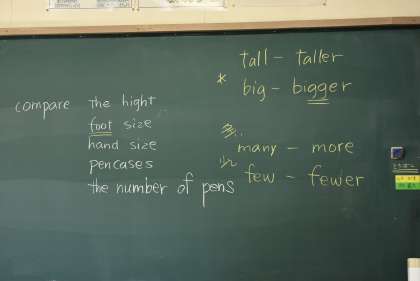 compare the hight
foot size
hand size
pencases
the number of pens
tall - taller
* big - bigger
多い
many - more
少い
few - fewer